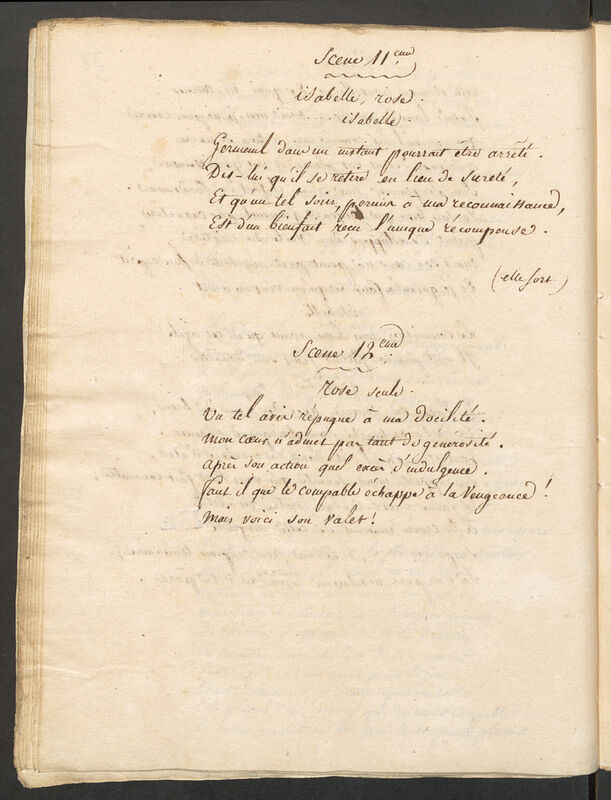 Scene 11.eme
isabelle, rose.
isabelle.
Germeuil dans un instant pourrait être arrété.
Dis-lui qu'il se retire en lieu de sureté,
Et qu'un tel soin, permis à ma reconnaissance,
Est d'un bienfait reçu l'unique récompense.
(elle sort)
Scene 12.eme
rose seule.
Un tel avis répugne à ma docilité.
mon cœur n'admet pas tant de generosité.
après son action quel excès d'indulgence.
faut il que le coupable échappe à la Vengeance!
mais voici son valet!